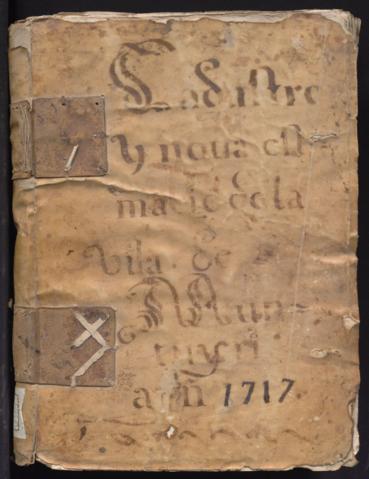 Cadastre
y noua esti
matió de la
Vila de
Mun-
tuyri
añ 1717.